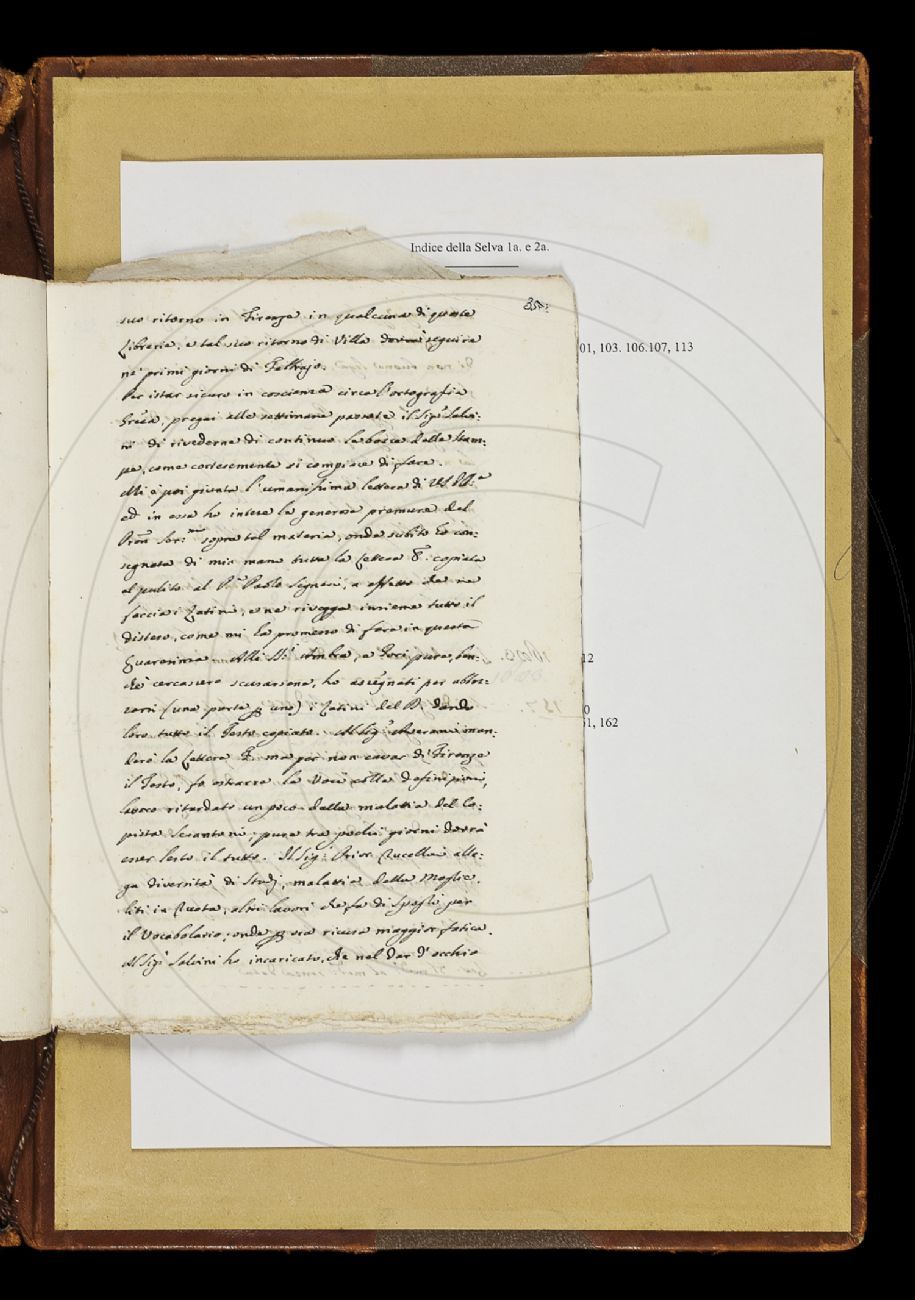 Indice della Selva 1a. e 2a.
01, 103. 106.107, 113
12
0
51, 162
suo ritorno in Firenze in qualcuna di queste
Libreria, e tal suo ritorno di Villa dovrà seguire
ne' primi giorni di Febbrajo.
Per istar sicuro in coscienza circa l'ortografia
Greca, pregai alle settimane passate il Sig.r Salvi:
ni di rivederne di continuo le bozze della stam:
pa, come cortesemente si compiace di fare.
Mi è poi giunta l'umanissima lettera di
ed in essa ho intesa la generosa premura del
Ser.mo sopra tal materia, onde subito ho con:
segnata di mia mano tutta la Lettera copiata
al pulito al P.re Paolo Segneri, a effetto che ne
faccia i Latini, e ne rivegga insieme tutto il
disteso, come mi ha promesso di fare in questa
Quaresima. Alli SS.i Ambra, e Foci pure, ben:
chè cercassero scusarsene, ho assegnati per abboz:
zarsi (una parte p uno) i Latini del B. dando
loro tutto il Testo copiato. Al Sig.r Averani man:
derò la Lettera F. ma per non cavar di Firenze
il Testo, fo estrarre le Voci colle definizioni,
lavoro ritardato un poco dalla malattia del Co:
pista Serantoni; pure tra pochi giorni dovrà
esser lesto il tutto. Il Sig.r Prior Rucellai alle:
ga diversità di Studj, malattia della Moglie,
liti in Ruota, altri lavori che fa di Spogli per
il Vocabolario; onde p ora ricusa maggior fatica.
Al Sig.r Salvini ho incaricato, che nel dar d'occhio